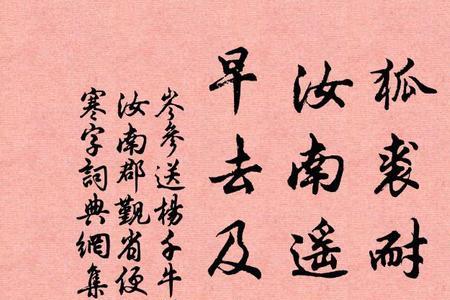 狐裘耐
汝南遥
早去及
岑參送楊千牛
汝南郡觐省便
寒字詞典網集